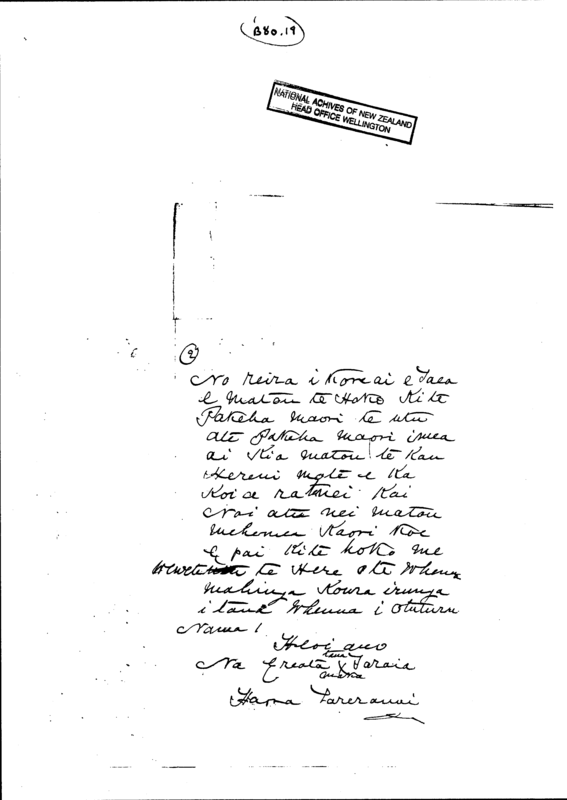 B80.19
NATIONAL ACHIVES OF NEW ZEALAND
HEAD OFFICE WELLINGTON
2
No reira i Kore ai e Taea
e Matou te Hoko Ki te
Pakeha Maori te utu
ate Pakeha Maori i mea
ai Kia Matou te Kau
Hereni mote e Ka
Koi
Nai atu nei Matou
Mehemea Kaori Koe
e pai Kite hoko me
te Here o te Whenua
Mahinga Koura i runga
i taua Whenua i Otuturu
Nama 1
Heoi ano
tona
Na Ereata X Taraia
Hapa